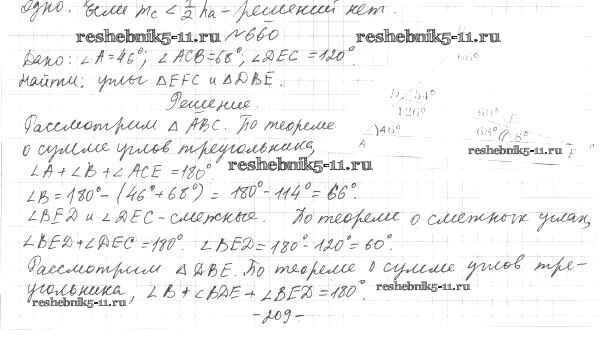 Одно. Если m_c < 1/2 h_a - решений нет.
reshebnik5-11.ru №660 reshebnik5-11.ru
Дано: ∠A=46°; ∠ACB=68°, ∠DEC=120°.
Найти: углы ΔEFC и ΔDBE.
Решение.
Рассмотрим ΔABC. По теореме
о сумме углов треугольника,
∠A+∠B+∠ACE=180°
∠B=180°-(46°+68°)=180°-114°=66°
∠BED и ∠DEC-смежные. По теореме о смежных углах,
∠BED+∠DEC=180°. ∠BED=180°-120°=60°.
Рассмотрим ΔDBE. По теореме о сумме углов тре-
угольника, ∠B+∠BDE+∠BED=180°.
-209-
66°
D 54°
126°
60°
A 46°
68°
F
reshebnik5-11.ru
reshebnik5-11.ru
reshebnik5-11.ru
reshebnik5-11.ru